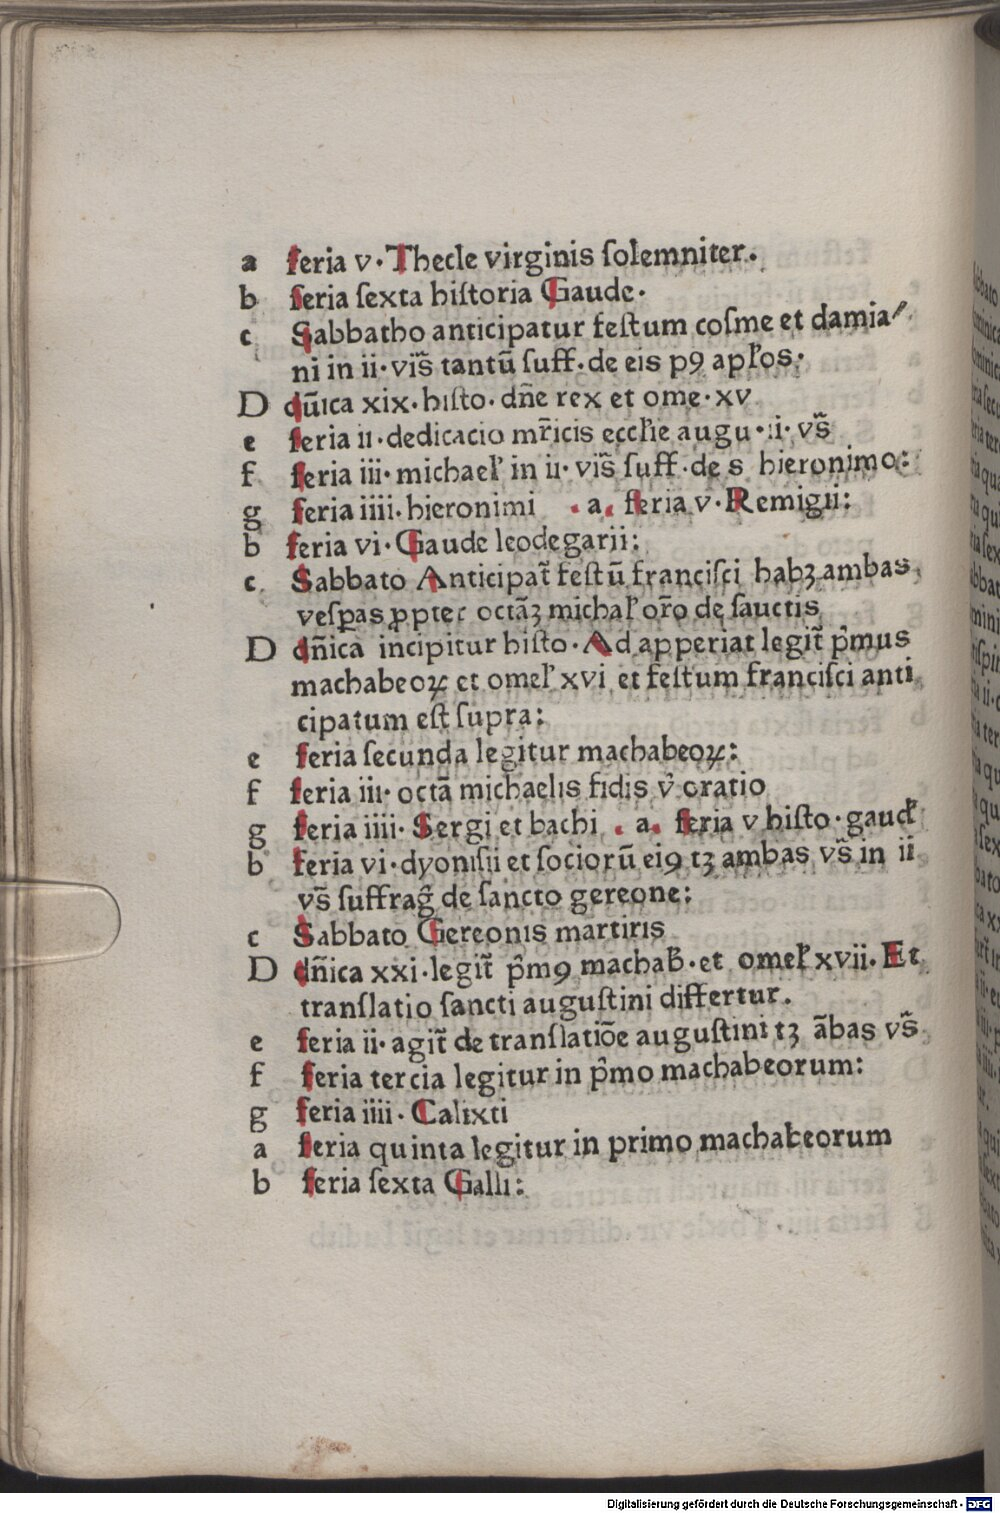 a feria v. Thecle virginis ſolemniter.
b feria ſexta hiſtoria Gaude.
c Sabbatho anticipatur feſtum coſme et damia/
ni in ii. viſ̃ tantū ſuff. de eis pꝰ apl̕os.
D dn̄ica xix. hiſto. dn̄e rex et ome. xv
e feria ii. dedicacio mr̄icis eccl̕ie augu. ii. vſ̃
f feria iii. michael̕ in ii. viſ̃ ſuff. de s hieronimo:
g feria iiii. hieronimi . a. feria v. Remigii:
b feria vi. Gaude leodegarii:
c Sabbato Anticipat̄ feſtū franciſci habꝫ ambas
veſꝑas ꝓpter octāꝫ michal̕ or̄o de ſanctis
D dn̄ica incipitur hiſto. Ad apperiat legit̄ p̄mus
machabeoꝝ et omel̕ xvi et feſtum franciſci anti
cipatum eſt ſupra:
e feria ſecunda legitur machabeoꝝ:
f feria iii. octā michaelis fidis v̄ oratio
g feria iiii. Sergi et bachi . a. feria v hiſto. gaud̕
b feria vi. dyoniſii et ſociorū eiꝰ tꝫ ambas vſ̃ in ii
vſ̃ ſuffrag̃ de ſancto gereone:
c Sabbato Gereonis martiris
D dn̄ica xxi. legit̄ p̄mꝰ machab̕. et omel̕ xvii. Et
tranſlatio ſancti auguſtini differtur.
e feria ii. agit̄ de tranſlatiōe auguſtini tꝫ ābas vſ̃
f feria tercia legitur in p̄mo machabeorum:
g feria iiii. Calixti
a feria quinta legitur in primo machabeorum
b feria ſexta Galli:
Digitalisierung gefördert durch die Deutsche Forschungsgemeinschaft - DFG